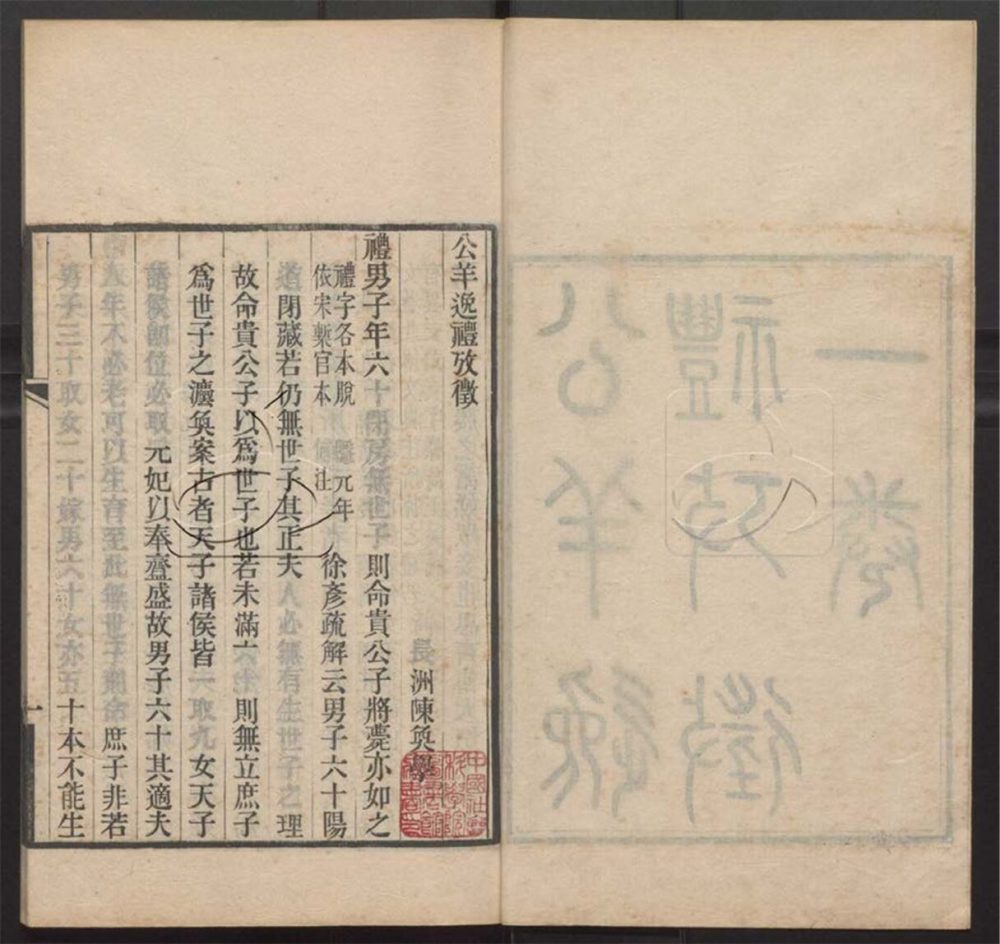 公羊逸
禮攷徵
一卷
公羊逸禮攷徵
長洲陳奐學
禮男子年六十閉房無世子則命貴公子將薨亦如之
禮字各本脫依宋槧官本 隱元年注 徐彥疏解云男子六十陽
道閉藏若仍無世子其正夫人必無有生世子之理
故命貴公子以爲世子也若未滿六十則無立庶子
爲世子之灋奐案古者天子諸侯皆一取九女天子
諸侯卽位必取元妃以奉齍盛故男子六十其適夫
人年不必老可以生育至此無世子則命庶子非若
男子三十取女二十嫁男六十女亦五十本不能生